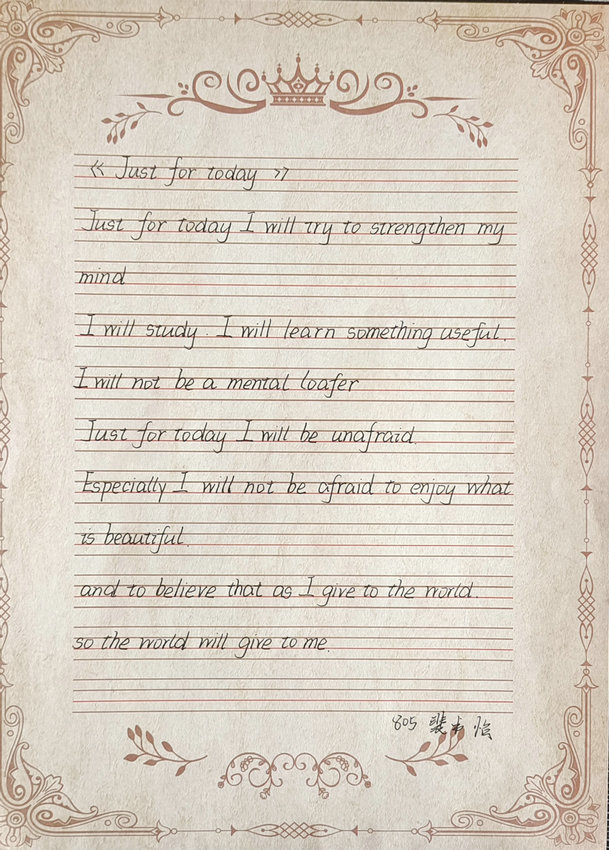 « Just for today »
Just for today I will try to strengthen my
mind
I will study. I will learn something useful.
I will not be a mental loafer
Just for today I will be unafraid.
Especially I will not be afraid to enjoy what
is beautiful.
and to believe that as I give to the world.
so the world will give to me.
805 裴 怡